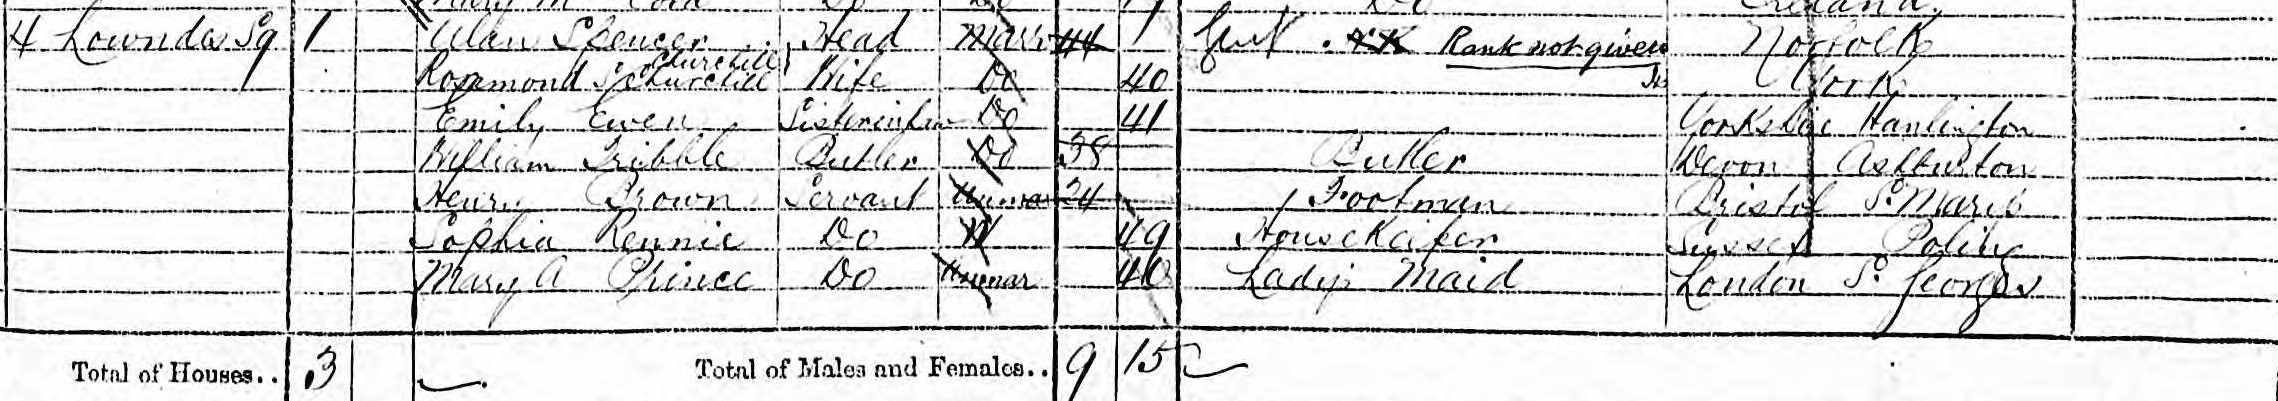 Mary M Do Do 19 Do Ireland
4 Lowndes Sq 1 Alan Spencer Churchill Head Mar 44 Rank not given Norfolk
Rosamond S Churchill Wife Do 40 York
Emily Ewen Sisterinlaw Do 41 Yorkshire
William Tribble Butler Do 38 Butler Devon Ashburton
Henry Brown Servant Unmar 24 Footman Bristol St Mary's
Sophia Rennie Do W 49 Housekeeper Sussex Poling
Mary A Prince Do Unmar 40 Lady's Maid London St Georges
Total of Houses.. 3 Total of Males and Females.. 9 15